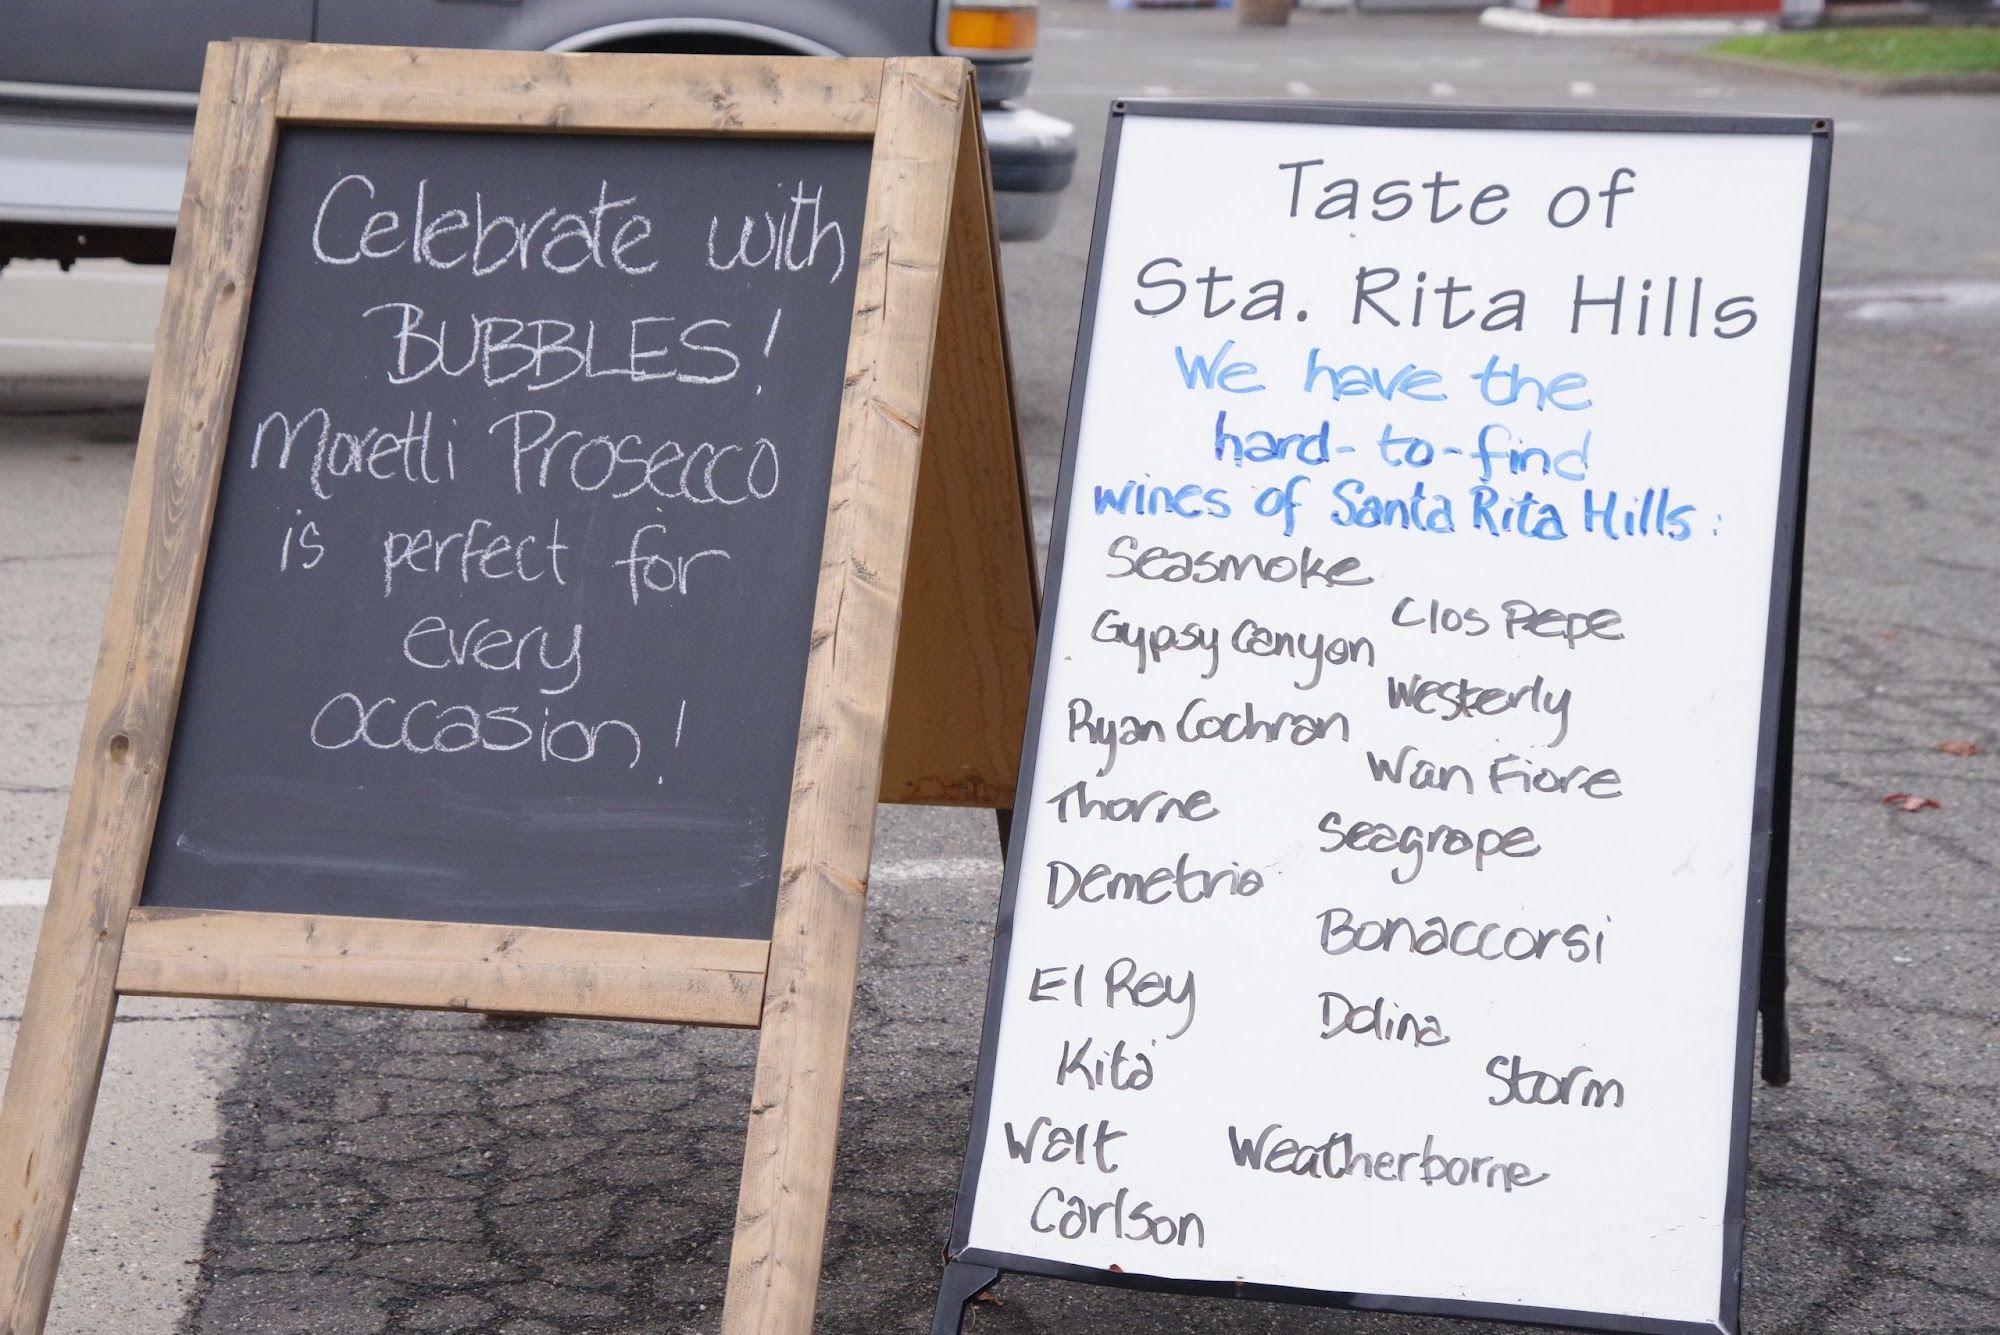 Celebrate with
BUBBLES!
Moretti Prosecco
is perfect for
every
occasion!
Taste of
Sta. Rita Hills
We have the
hard-to-find
wines of Santa Rita Hills:
Seasmoke
Clos Pepe
Gypsy Canyon
Westerly
Ryan Cochran
Wan Fiore
Thorne
Seagrape
Demetria
Bonaccorsi
El Rey
Dolina
Kitá
Storm
Walt
Weatherborne
Carlson